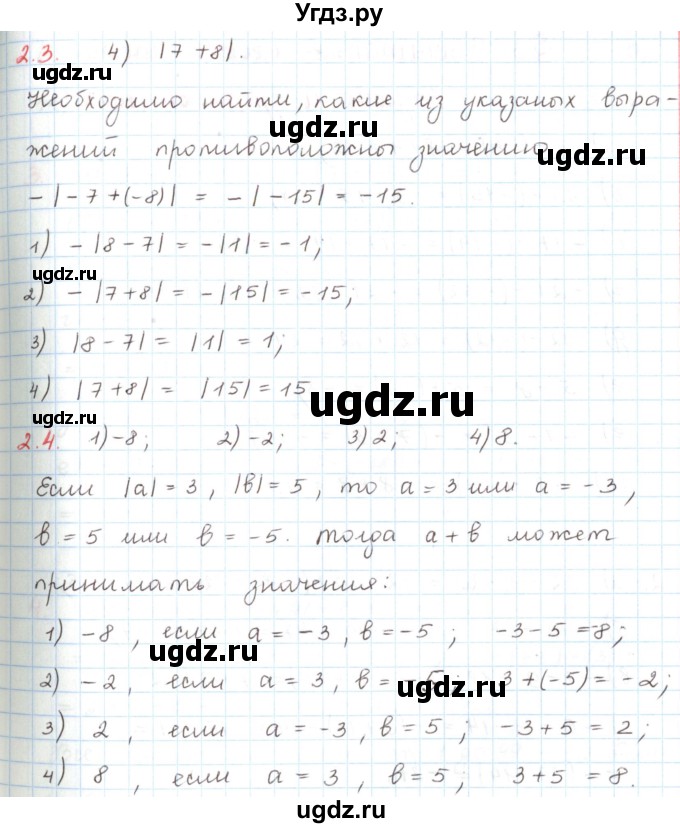 Угдз.ру
2.3. 4) |7+8|.
ugdz.ru
Необходимо найти, какие из указаных выра-
ugdz.ru
жений противоположны значению
ugdz.ru
-|-7+(-8)| = -|-15| = -15.
ugdz.ru
1) -|8-7| = -|1| = -1;
ugdz.ru
2) -|7+8| = -|15| = -15;
3) |8-7| = |1| = 1;
ugdz.ru
4) |7+8| = |15| = 15
ugdz.ru
ugdz.ru
2.4. 1) -8; 2) -2; 3) 2; 4) 8.
Если |a| = 3, |b| = 5, то a = 3 или a = -3,
b = 5 или b = -5. тогда a+b может
принимать значения:
1) -8, если a = -3, b = -5; -3-5 = -8;
ugdz.ru
2) -2, если a = 3, b = -5; 3+(-5) = -2;
ugdz.ru
3) 2, если a = -3, b = 5; -3+5 = 2;
4) 8, если a = 3, b = 5; 3+5 = 8.
ugdz.ru